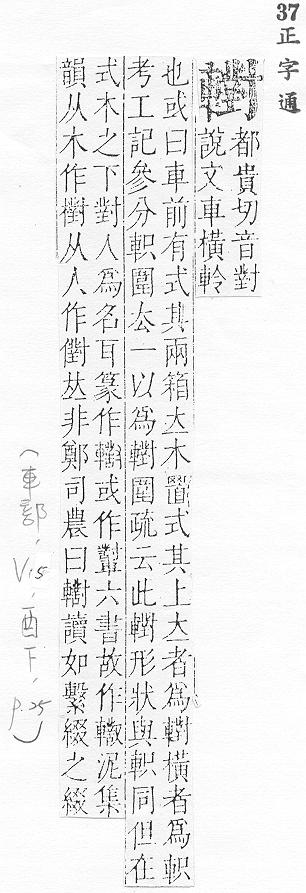 37 正字通
轛
都貴切音對
說文車橫軨
也或曰車前有式其兩箱立木置式其上立者為轛橫者為軹
考工記參分軹圍厺一以為轛圍疏云此轛形狀與軹同但在
式木之下對人為名耳篆作轛或作六書故作轍泥集
韻从木作从人作𠀤非鄭司農曰轛讀如繫綴之綴
(車部, V.15, 酉下, p.25)